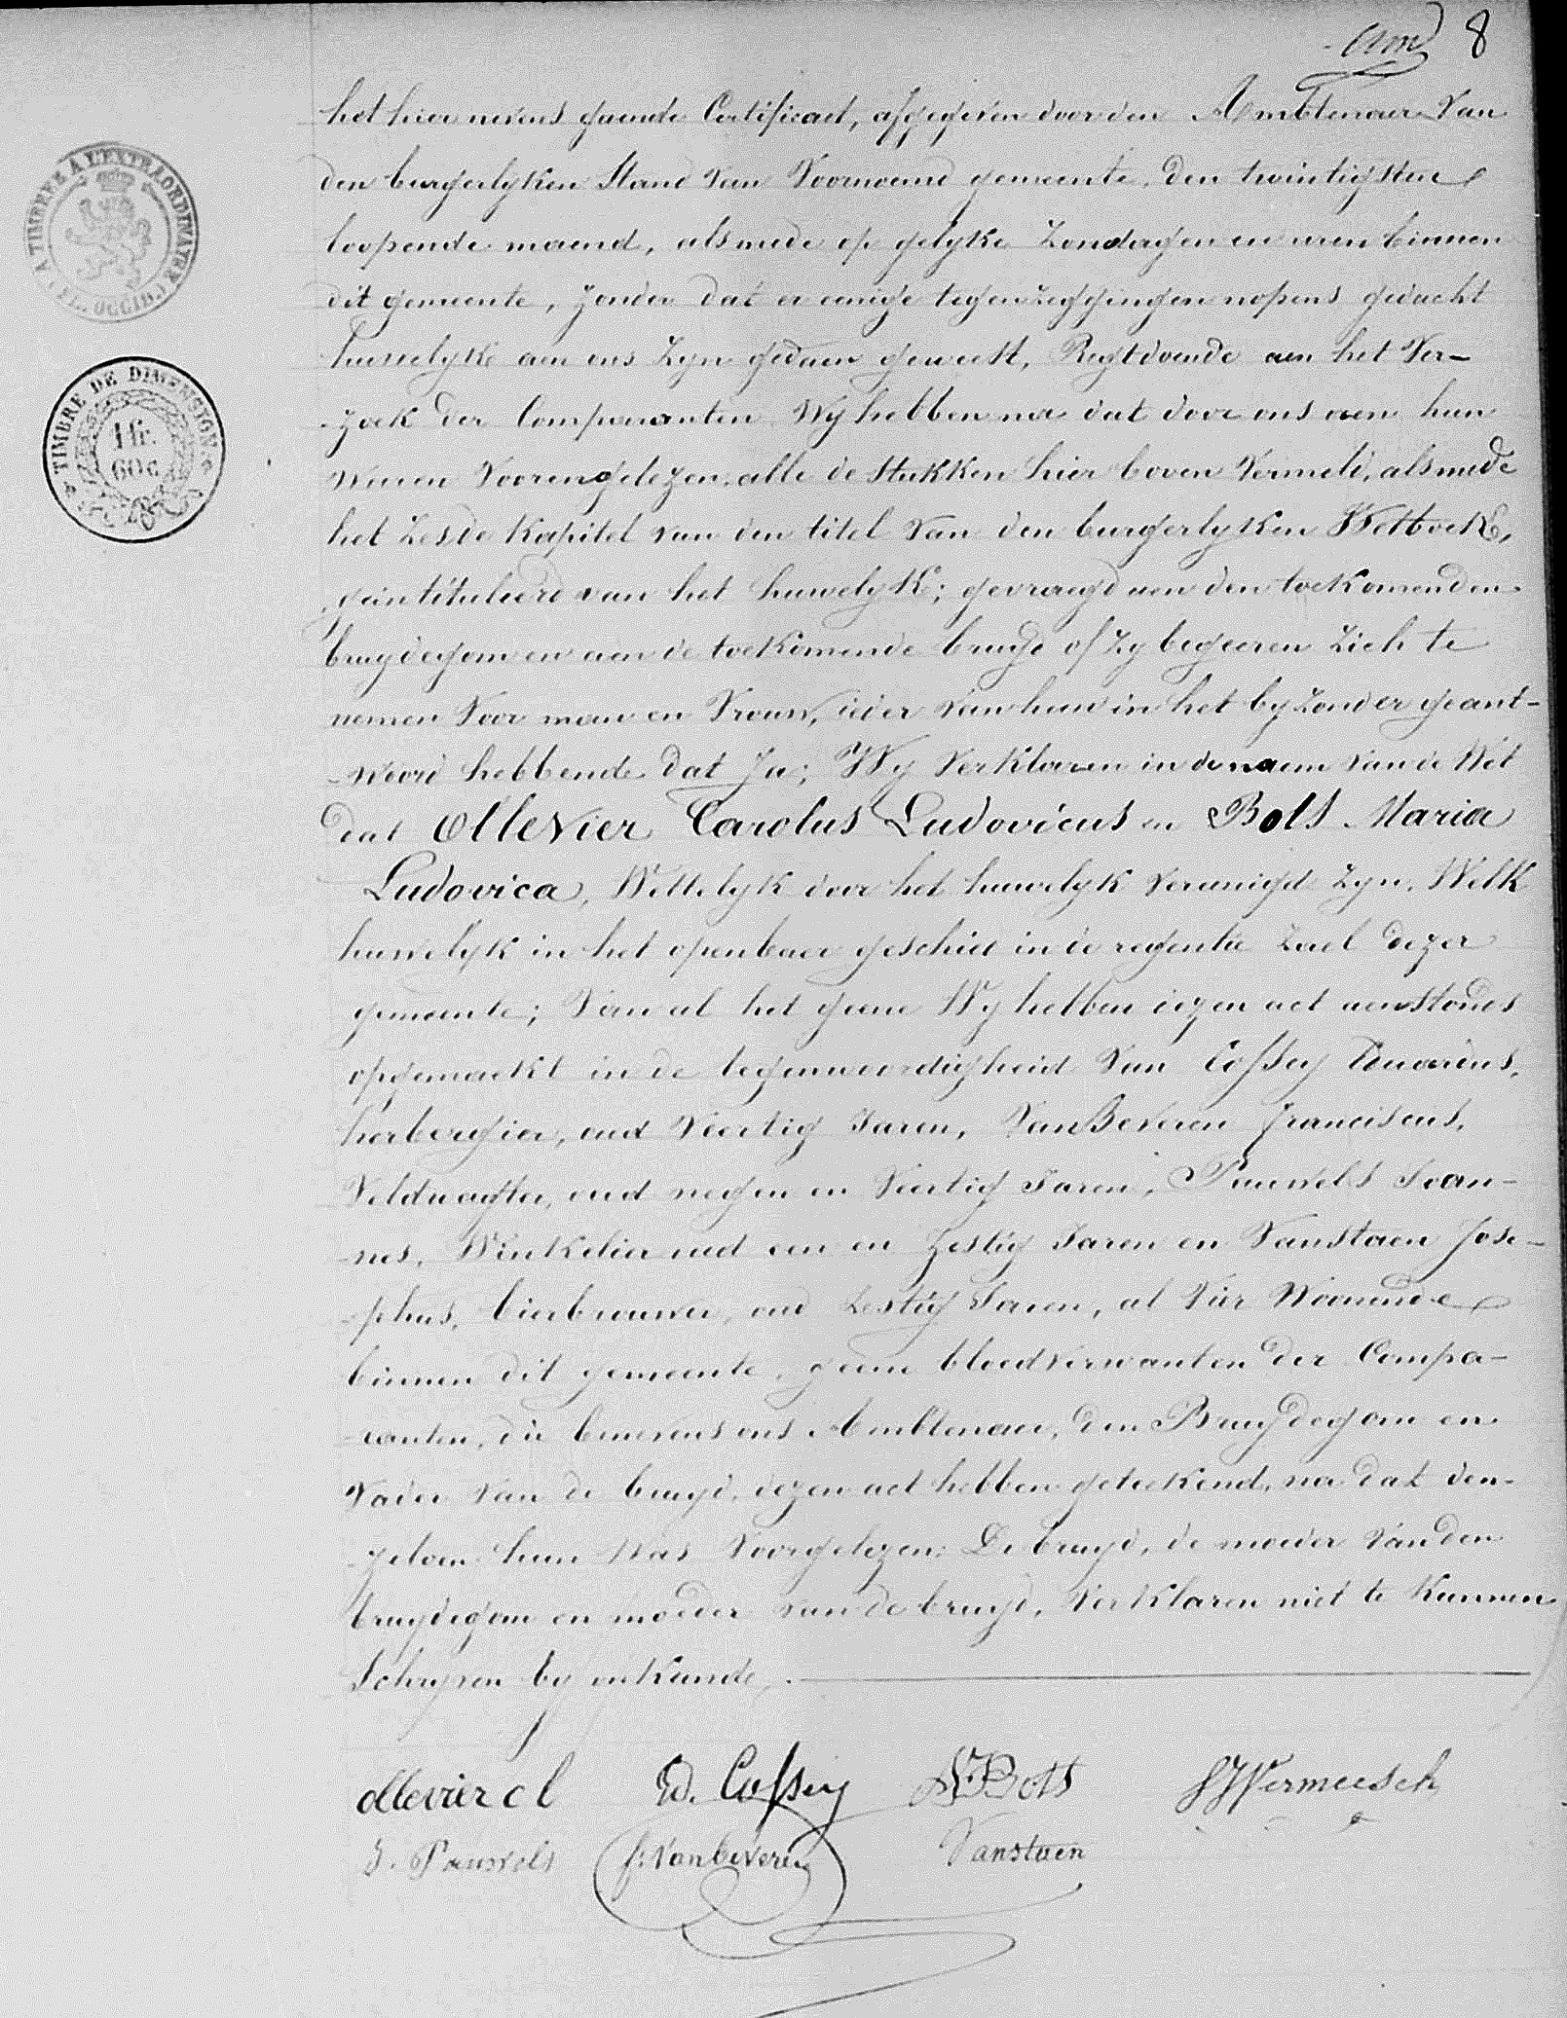 8
het hier nevens gaende Certificaet, afgegeven door den Ambtenaer Van
den burgerlyken Stand Van Voornoemd gemeente, den twintigsten
loopende maend, alsmede op gelyke Zondagen en uren binnen
dit gemeente, zonder dat er eenige tegenzeggingen nopens gedacht
huwelyk aen ons Zyn gedaen geweest, Regtdoende aen het Ver-
-zoek der Comparanten Wy hebben na dat door ons aen hun
waren Voorengelezen, alle de Stukken hier boven Vermeld, alsmede
het Zesde Kapitel van den titel Van den burgerlyken Wetboek,
geintituleerd van het huwelyk; gevraegd aen den toekomenden
bruydegom en aen de toekomende bruyd of Zy begeeren Zich te
nemen Voor man en Vrouw, ieder Van hun in het byzonder geant-
-woord hebbende dat Ja; Wy Verklaren in de naem Van de Wet
dat Ollevier Carolus Ludovicus en Bots Maria
Ludovica, Wettelyk door het huwelyk Vereenigd Zyn. Welk
huwelyk in het openbaer geschied in de regentie Zael dezer
gemeente; Van al het geene Wy hebben dezen act aenstonds
opgemaekt in de tegenwoordigheid Van Cossey Eduardus,
herbergier, oud Veertig Jaren, VanBeveren Franciscus,
Veldwagter, oud negen en Veertig Jaren, Pauwels Joan-
-nes, Winkelier oud een en Zestig Jaren en Vanstaen Jose-
-phus, bierbrouwer, oud Zestig Jaren, al Vier Woonende
binnen dit gemeente, geene bloedverwanten der Compa-
-ranten, die benevens ons Ambtenaer, den Bruydegom en
Vader Van de bruyd, dezen act hebben geteekend, na dat den-
-zelven hun Was Voorgelezen: De bruyd, de moeder Van den
bruydegom en moeder van de bruyd, Verklaren niet te Kunnen
Schryven by onkunde.
ollevier c l Ed. Cossey Bots Vermeesch
J. Pauwels f: Vanbeveren Vanstaen
A TIMBRER A L'EXTRAORDINAIRE
(FL. OCCID.)
TIMBRE DE DIMENSION
1 fr.
60 c